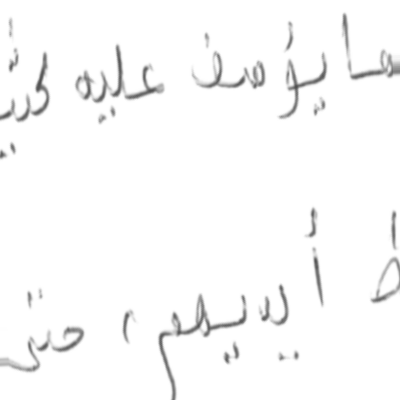 مما يؤسف عليه كثي
أيديهم، حتى